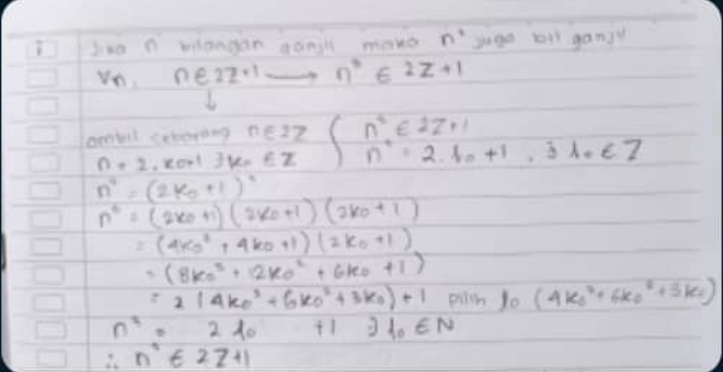 i Jika n bilangan ganjil maka n³ juga bil ganjil
∀n, n ∈ 2Z+1 → n³ ∈ 2Z+1
↓
ambil sebarang n ∈ 2Z { n³ ∈ 2Z+1
n = 2.k₀+1 ∃ k₀ ∈ Z } n³ = 2.l₀ + 1 , ∃ l₀ ∈ Z
n³ = (2k₀ + 1)³
n³ = (2k₀ + 1) (2k₀+1) (2k₀+1)
= (4k₀² + 4k₀ +1) (2k₀ +1)
= (8k₀³ + 12k₀² + 6k₀ +1)
= 2 (4k₀³ + 6k₀² + 3k₀) + 1 pilih l₀ (4k₀³ + 6k₀² + 3k₀)
n³ = 2 l₀ +1 ∃ l₀ ∈ N
∴ n³ ∈ 2Z+1